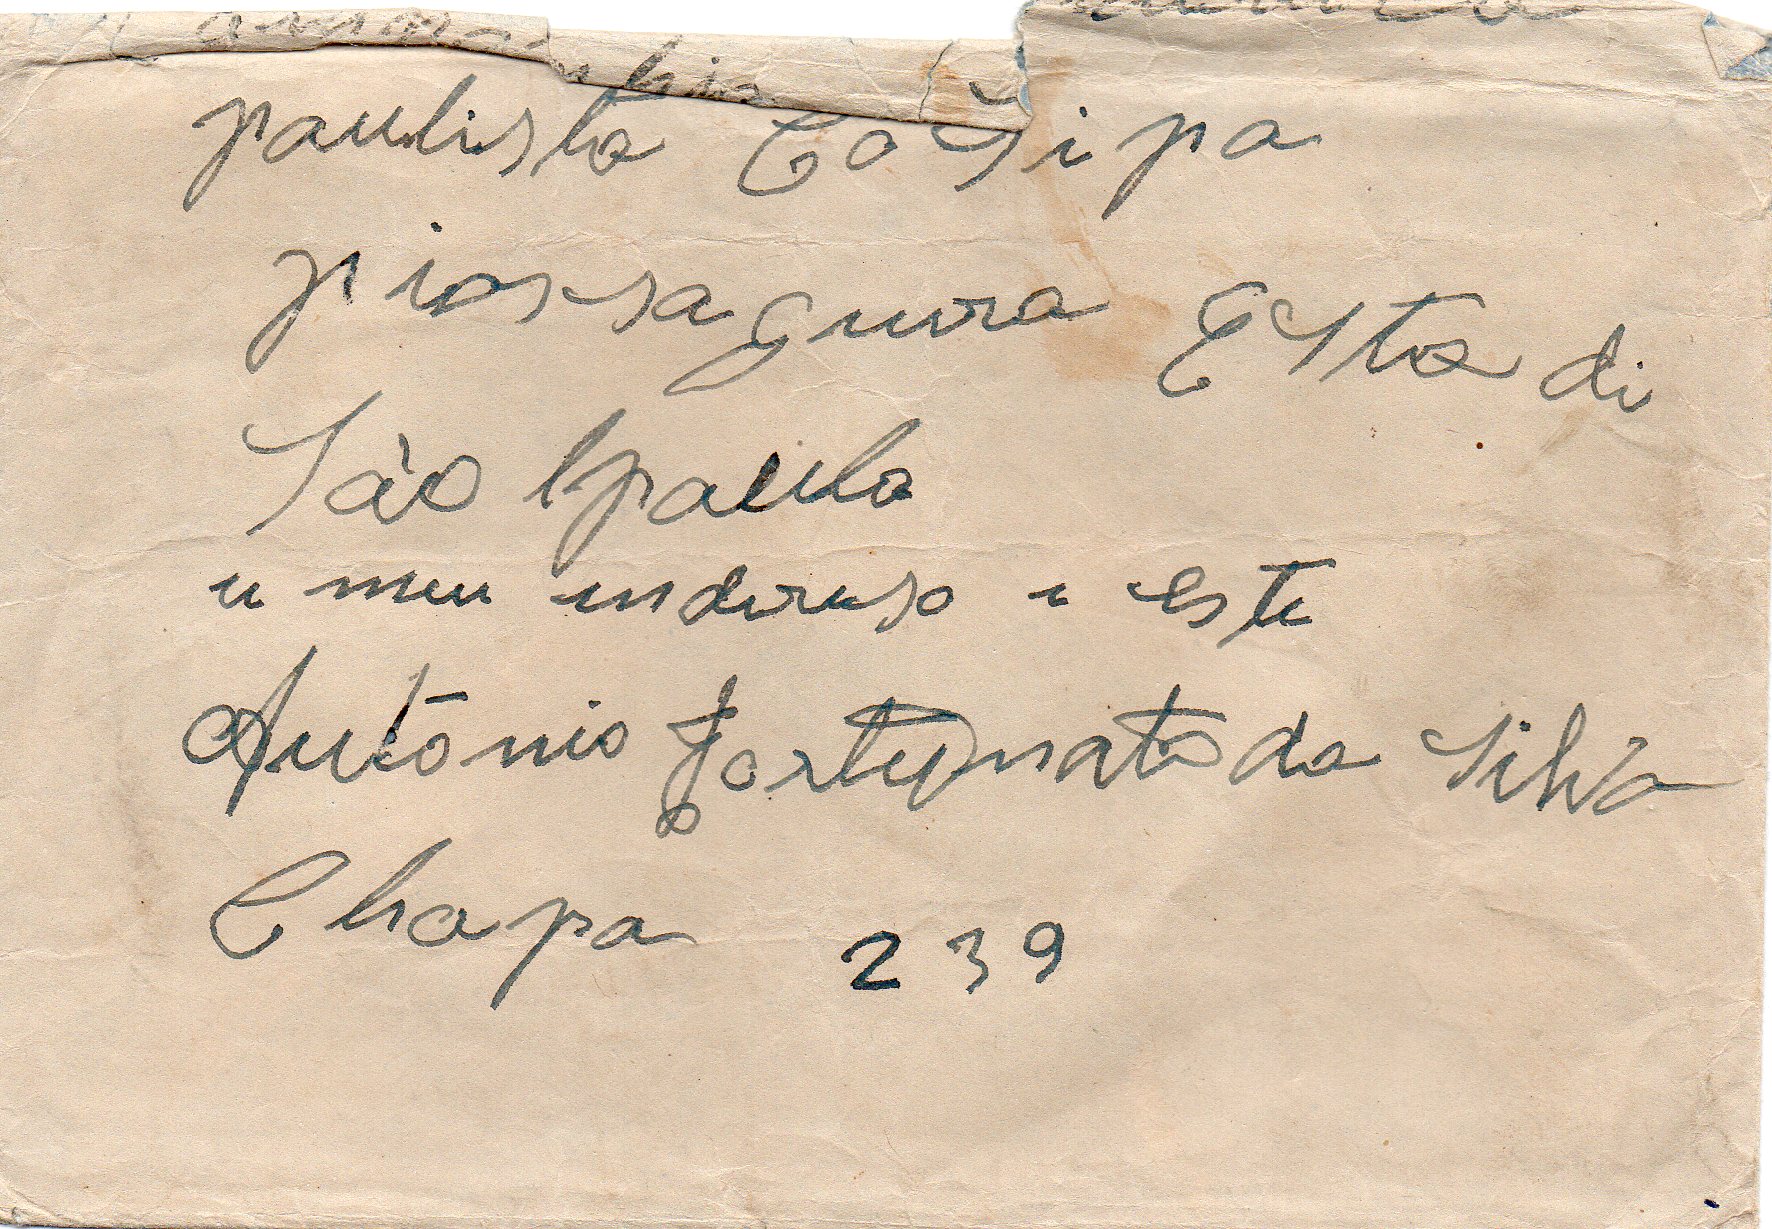 paulista Cosipa
piassaguera Esta di
São Paulo
u meu indereso i esti
Antonio Fortunato da Silva
Chapa 239